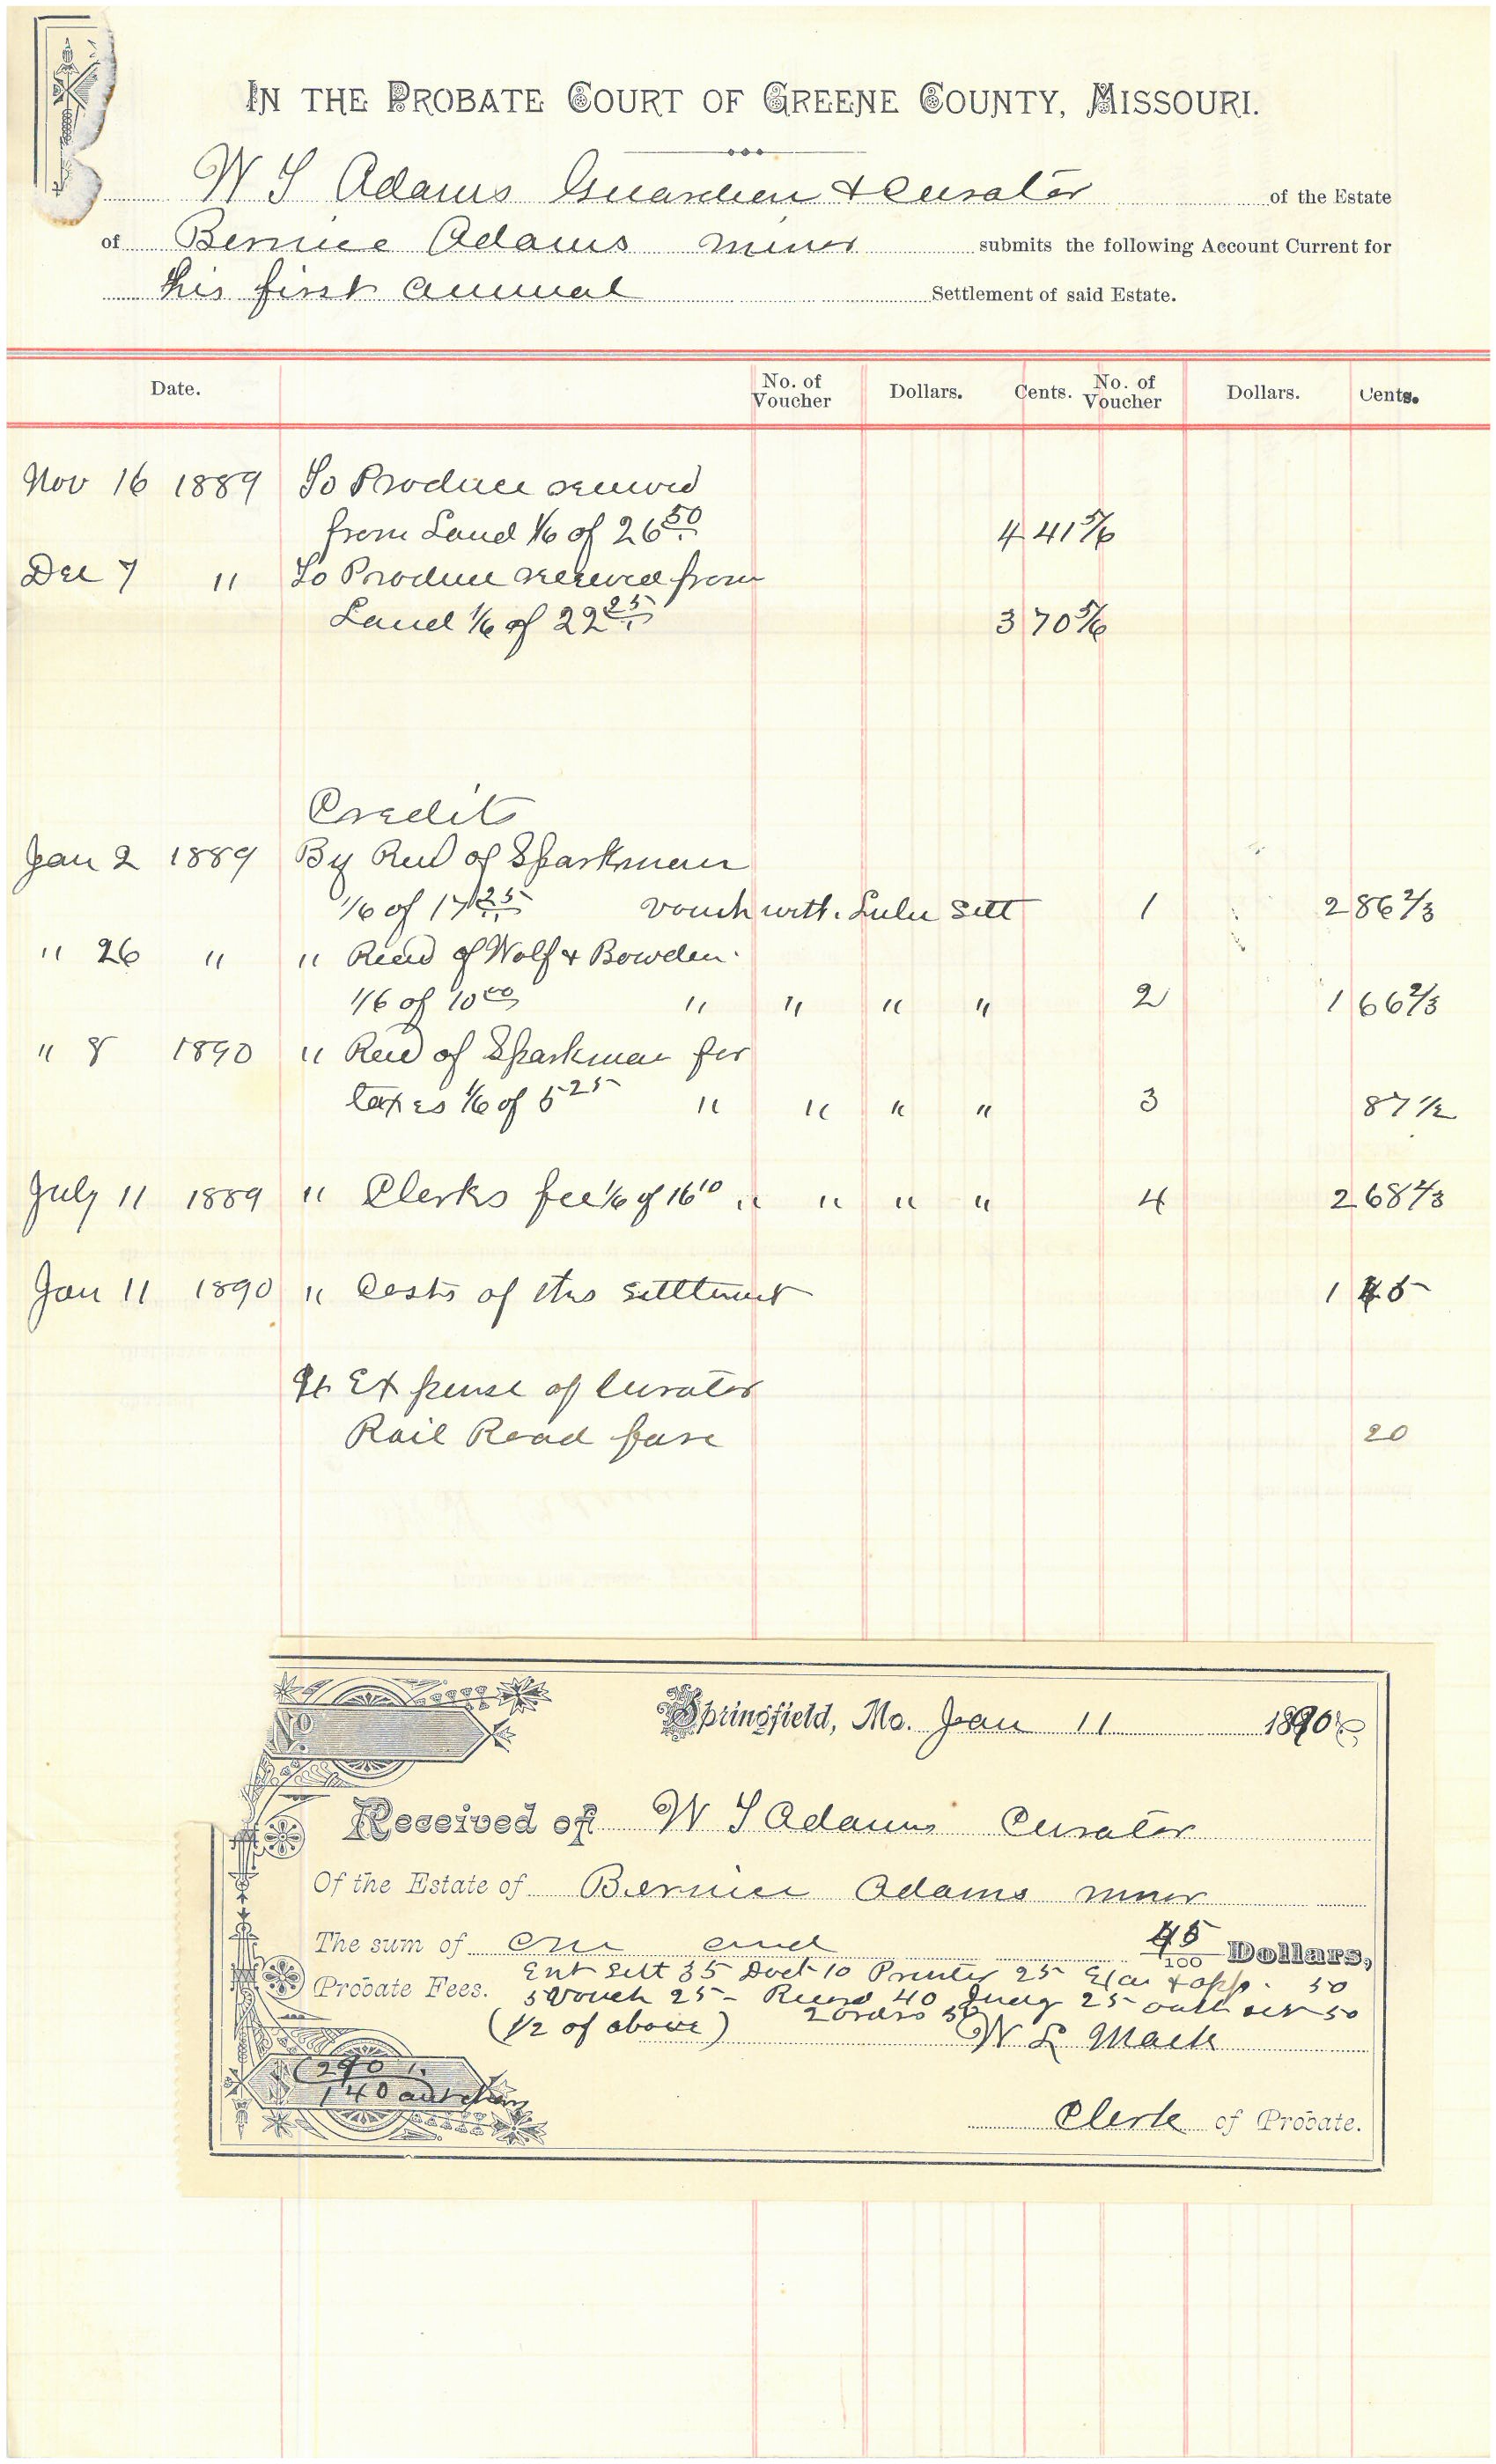 IN THE PROBATE COURT OF GREENE COUNTY, MISSOURI.
W S Adams Guardian & Curator of the Estate
of Bernice Adams minor submits the following Account Current for
his first annual Settlement of said Estate.
Date. No. of Voucher Dollars. Cents. No. of Voucher Dollars. Cents.
Nov 16 1889 To Produce received
from Land 1/6 of 26 50 4 41 5/6
Dec 7 " To Produce received from
Land 1/6 of 22 25 3 70 5/6
Credits
Jan 2 1889 By Recd of Sparkman
1/6 of 17 25 vouch with Lulu Sett 1 2 86 2/3
" 26 " " Recd of Wolf & Bowden
1/6 of 10 00 " " " " 2 1 66 2/3
" 8 1890 " Recd of Sparkman for
taxes 1/6 of 5 25 " " " " 3 87 1/2
July 11 1889 " Clerks fee 1/6 of 16 10 " " " " 4 2 68 2/3
Jan 11 1890 " Costs of this settlement 1 45
Expense of Curator
Rail Road fare 20
No
Springfield, Mo. Jan 11 1890
Received of W S Adams Curator
Of the Estate of Bernice Adams minor
The sum of one and 45/100 Dollars,
Ent Sett 35 Doct 10 Printer 25 Exa & app. 50
Probate Fees. 5 Vouch 25 - Record 40 Judg 25 oath 50
(1/2 of above) 2 orders 50 W L Mack
290
140
Clerk of Probate.